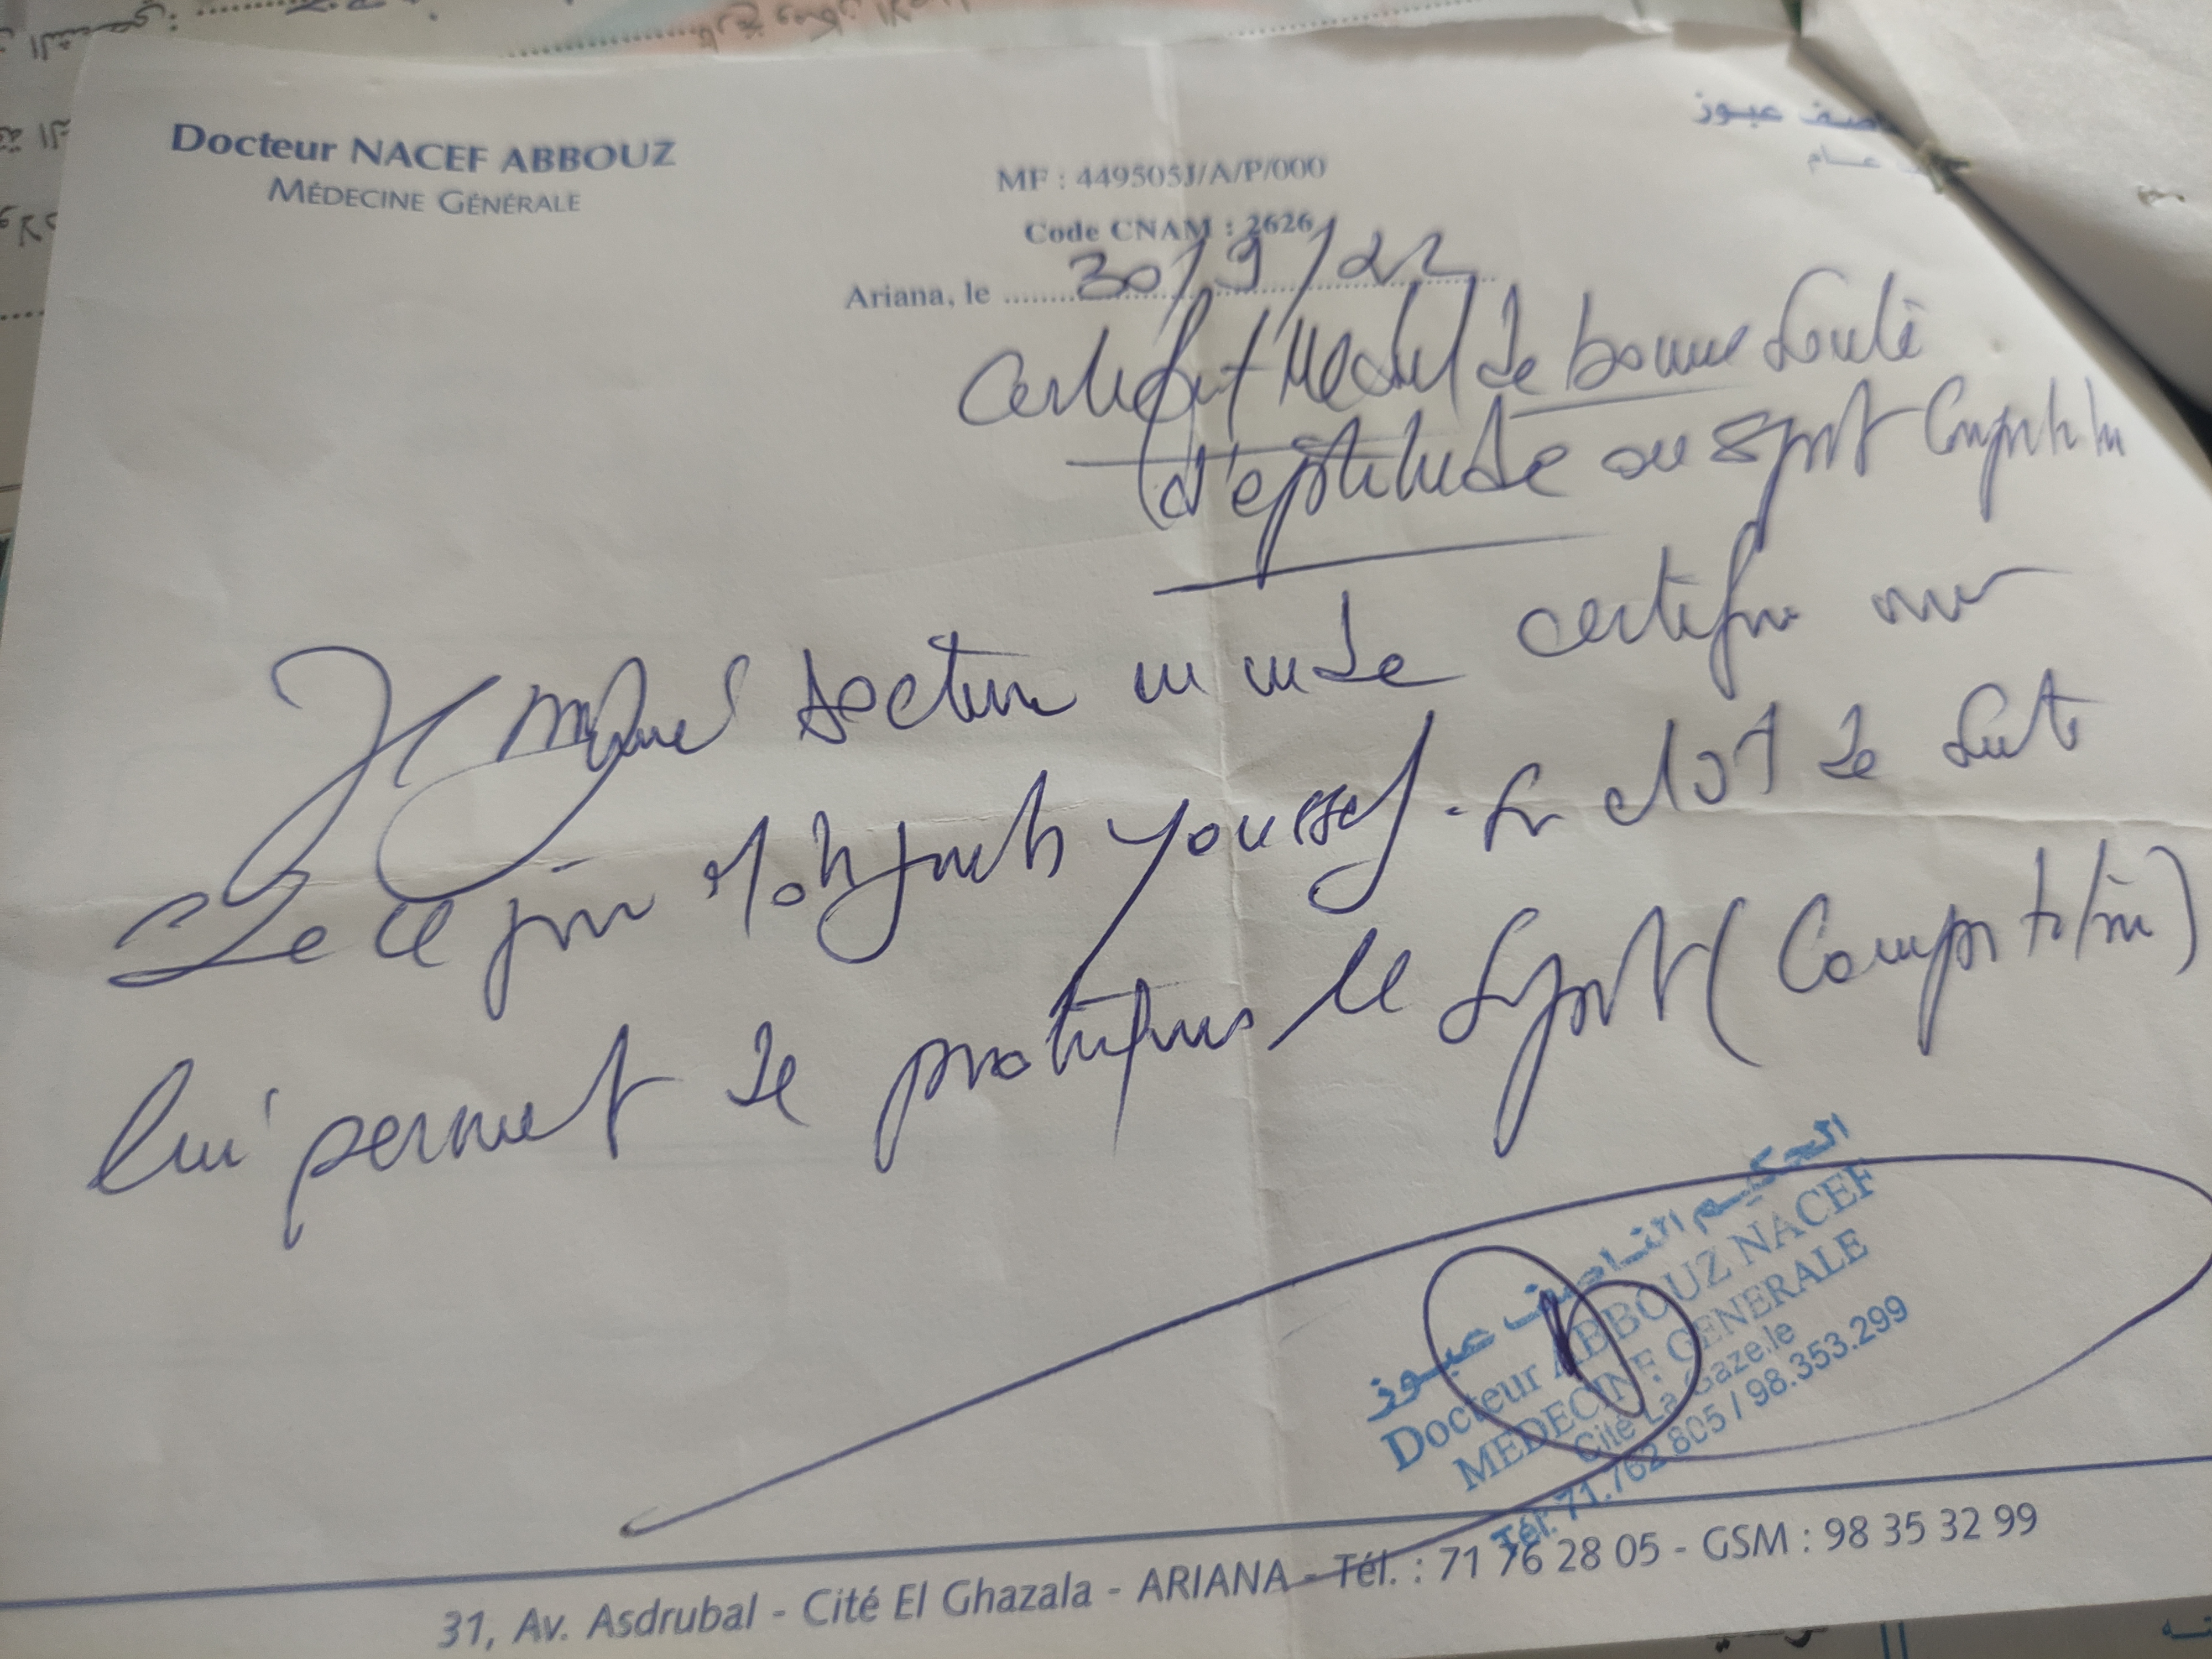 Docteur NACEF ABBOUZ
MÉDECINE GÉNÉRALE
ـاصف عبـوز
ـب عـام
MF : 449505J/A/P/000
Code CNAM : 2626
Ariana, le 30/9/22
Certificat Médical de bonne Santé
d'aptitude au Sport Compétition
Je soussigné docteur en mede certifie que
de ce jour Moh Youssef. Son état de Santé
lui permet de pratiquer le Sport (Compétition)
الحكيم الناصف عبوز
Docteur ABBOUZ NACEF
MEDECINE GENERALE
Cité La Gazelle
Tél: 71.762.805 / 98.353.299
31, Av. Asdrubal - Cité El Ghazala - ARIANA - Tél. : 71 76 28 05 - GSM : 98 35 32 99